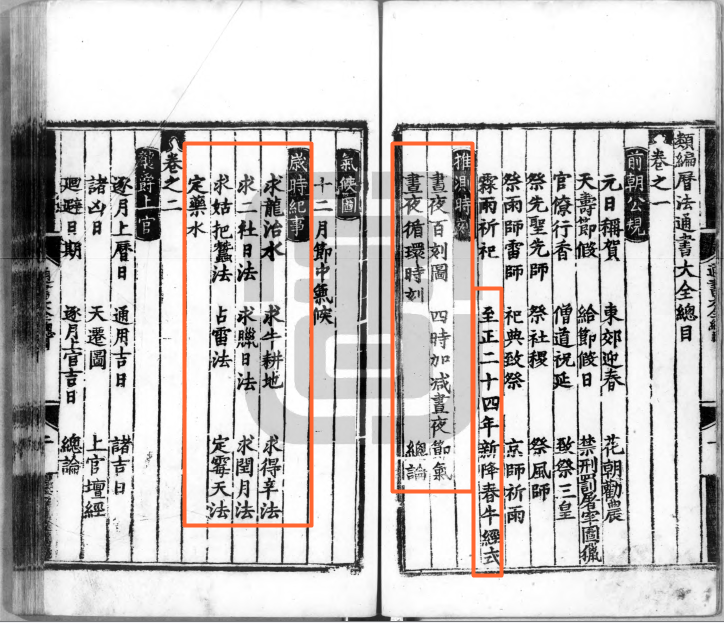 類編曆法通書大全總目
卷之一
前朝公規
元日稱賀 東郊迎春 花朝勸農
天壽節假 給節假日 禁刑罰屠宰圍獵
官僚行香 僧道祝延 致祭三皇
祭先聖先師 祭社稷 祭風師
祭雨師雷師 祀典致祭 京師祈雨
霖雨祈祀 至正二十四年新降春牛經式
推測時刻
晝夜百刻圖 四時加減晝夜節氣
晝夜循環時刻 總論
氣候圖
十二月節中氣候
歲時紀事
求龍治水 求牛耕地 求得辛法
求二社日法 求臘日法 求閏月法
求姑把蠶法 占雷法 定霉天法
定藥水
卷之二
襲爵上官
逐月上曆日 通用吉日 諸吉日
諸凶日 天遷圖 上官壇經
廻避日期 逐月上官吉日 總論